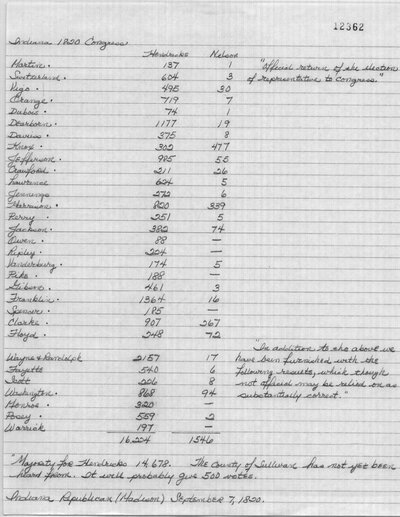 12362
Indiana 1820 Congress
Hendricks Nelson
Martin. 137 1 "Official return of the election
Switzerland. 604 3 of representative to Congress."
Vigo. 495 30
Orange. 719 7
Dubois. 74 1
Dearborn. 1177 19
Daviess. 375 8
Knox. 302 477
Jefferson. 985 55
Crawford. 211 26
Lawrence 624 5
Jennings 272 6
Harrison. 820 339
Perry. 251 5
Jackson. 382 74
Owen. 88 —
Ripley. 224 —
Vanderburg. 174 5
Pike. 188 —
Gibson. 461 3
Franklin. 1364 16
Spencer. 185 —
Clarke. 907 267
Floyd. 248 72
"In addition to the above we
Wayne & Randolph 2157 17 have been furnished with the
Fayette 540 6 following results, which though
Scott 226 8 not official may be relied on as
Washington. 868 94 substantially correct."
Monroe. 320 —
Posey. 559 2
Warrick 197 —
16,224 1546
"Majority for Hendricks 14,678. The County of Sullivan has not yet been
heard from. It will probably give 500 votes.
Indiana Republican (Madison) September 7, 1820.